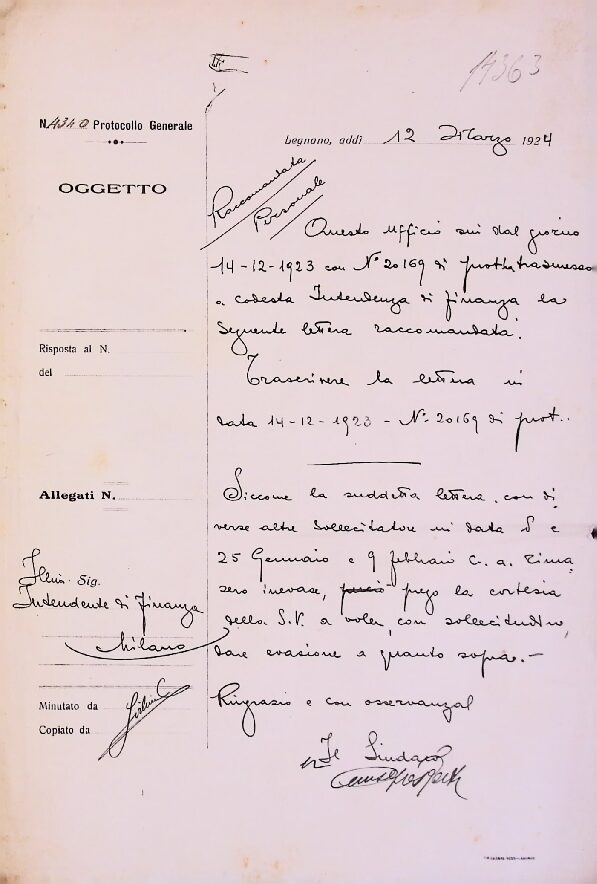 14363
N. 4340 Protocollo Generale
Legnano, addì 12 Marzo 1924
OGGETTO
Raccomandata
Personale
Questo Ufficio sin dal giorno
14-12-1923 con N° 20169 di prot. ha trasmesso
a codesta Intendenza di Finanza la
seguente lettera raccomandata:
Risposta al N.
del
Trascrivere la lettera in
data 14-12-1923 - N° 20169 di prot..
Allegati N.
Siccome la suddetta lettera, con di
verse altre sollecitatorie in data 5 e
25 Gennaio e 9 febbraio c. a. rima
sero inevase, prego la cortesia
della S.V. a voler, con sollecitudine,
dare evasione a quanto sopra.-
Ill.mo Sig.
Intendente di Finanza
Milano
Minutato da
Copiato da
Ringrazio e con osservanza
Il Sindaco